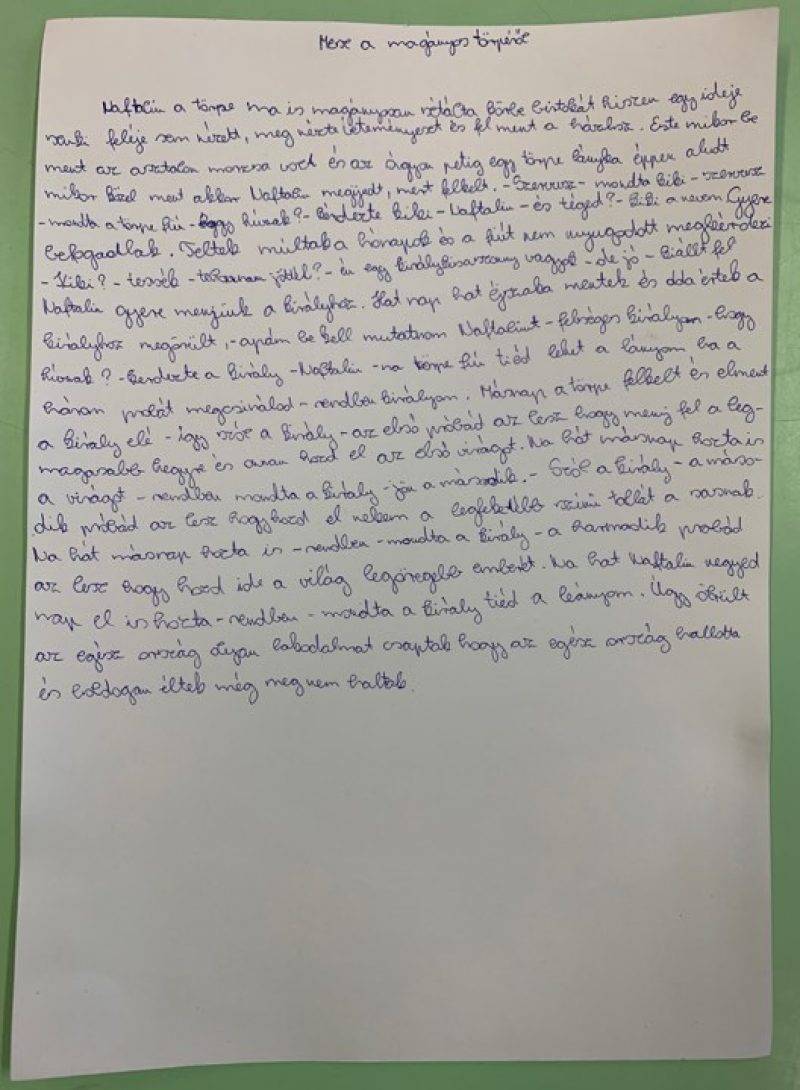 Mese a magányos törpéről
Naftalin a törpe ma is magányosan sétálta körbe birtokát hiszen egy ideje
senki feléje sem nézett, meg nézte veteményeset és fel ment a házhoz. Este mikor be
ment az asztalon morzsa volt és az ágyon petig egy törpe lányka éppen aludt
mikor közel ment akkor Naftalin megijedt, mert felkelt. - Szervusz - mondta kiki - szervusz
- mondta a törpe fiú - hogy hívnak? - kérdezte kiki - Naftalin - és téged? - kiki a nevem Gyere
befogadlak. Teltek múltak a hónapok és a fiút nem nyugodott megkérdezi
- Kiki? - tessék - te honnan jöttél? - én egy királykisasszony vagyok - de jó - kiállt fel
Naftalin gyere menjünk a királyhoz. Hat nap hat éjszaka mentek és oda értek a
királyhoz megörült, - apám be kell mutatnom Naftalint - felséges királyom - hogy
hívnak? - kerdezte a király - Naftalin - na törpe fiú tiéd lehet a lányom ha a
három probát megcsinálod - rendben királyom. Másnap a törpe felkelt és elment
a király elé - így szól a király - az első próbád az lesz hogy menj fel a leg-
magasabb hegyre és onan hozd el az első virágot. Na hát másnap hozta is
a virágot - rendben mondta a király - jön a második. - Szól a király - a máso-
dik próbád az lesz hogy hozd el nekem a legfeketébb színű tollát a sasnak.
Na hát másnap hozta is - rendben - mondta a király - a harmadik probád
az lesz hogy hozd ide a világ legöregebb emberét. Na hat Naftalin negyed
nap el is hozta - rendben - mondta a király tiéd a leányom. Úgy örült
az egész ország olyan lakodalmat csaptak hogy az egész ország hallotta
és boldogan éltek még meg nem haltak.